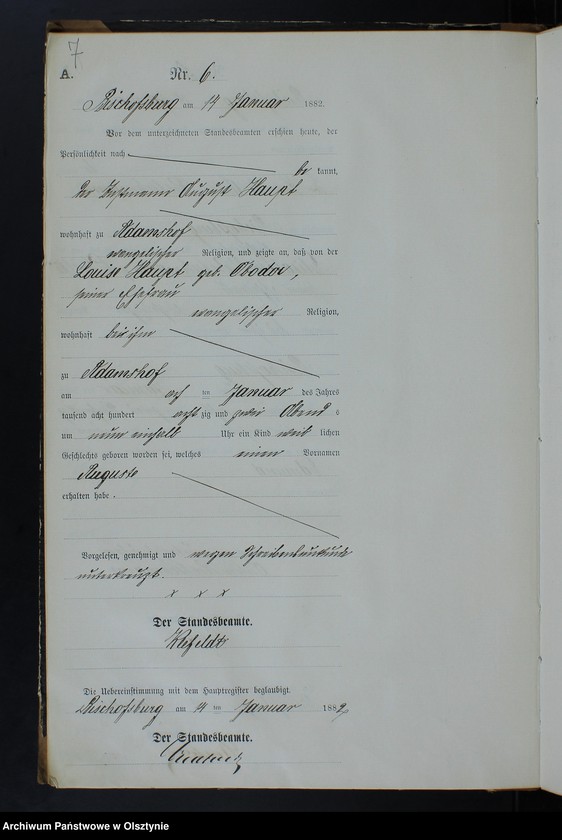 7
A.
Nr. 6.
Bischofsburg am 14 Januar 1882.
Vor dem unterzeichneten Standesbeamten erschien heute, der
Persönlichkeit nach
be kannt,
der Instmann August Haupt
wohnhaft zu Adamshof
evangelischer Religion, und zeigte an, daß von der
Louise Haupt geb.
seiner Ehefrau
evangelischer Religion,
wohnhaft bei ihm
zu Adamshof
am acht ten Januar des Jahres
tausend acht hundert acht zig und zwei Abend s
um neun einhalb Uhr ein Kind weib lichen
Geschlechts geboren worden sei, welches einen Vornamen
Auguste
erhalten habe.
Vorgelesen, genehmigt und wegen Schreibensunkunde
unterkreuzt.
x x x
Der Standesbeamte.
Die Uebereinstimmung mit dem Hauptregister beglaubigt.
Bischofsburg am 14 ten Januar 1882
Der Standesbeamte.
Archiwum Państwowe w Olsztynie